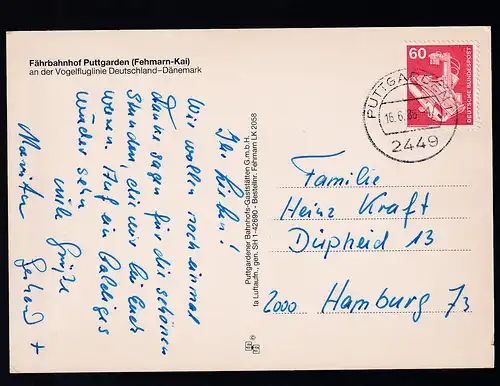 Fährbahnhof Puttgarden (Fehmarn-Kai)
an der Vogelfluglinie Deutschland–Dänemark
Ihr Lieben!
Wir wollen noch einmal
danke sagen für die schönen
Stunden, die wir bei Euch
waren. Auf ein baldiges
wieder sehn
viele Grüße
Gerhard +
Puttgardener Bahnhofs-Gaststätten G.m.b.H.
fa Luftaufn., gen. SH 1-42690 - Bestellnr. Fehmarn LK 2058
60
DEUTSCHE BUNDESPOST
PUTTGARDEN
16.6.
2449
Familie
Heinz Kraft
13
2000 Hamburg 73